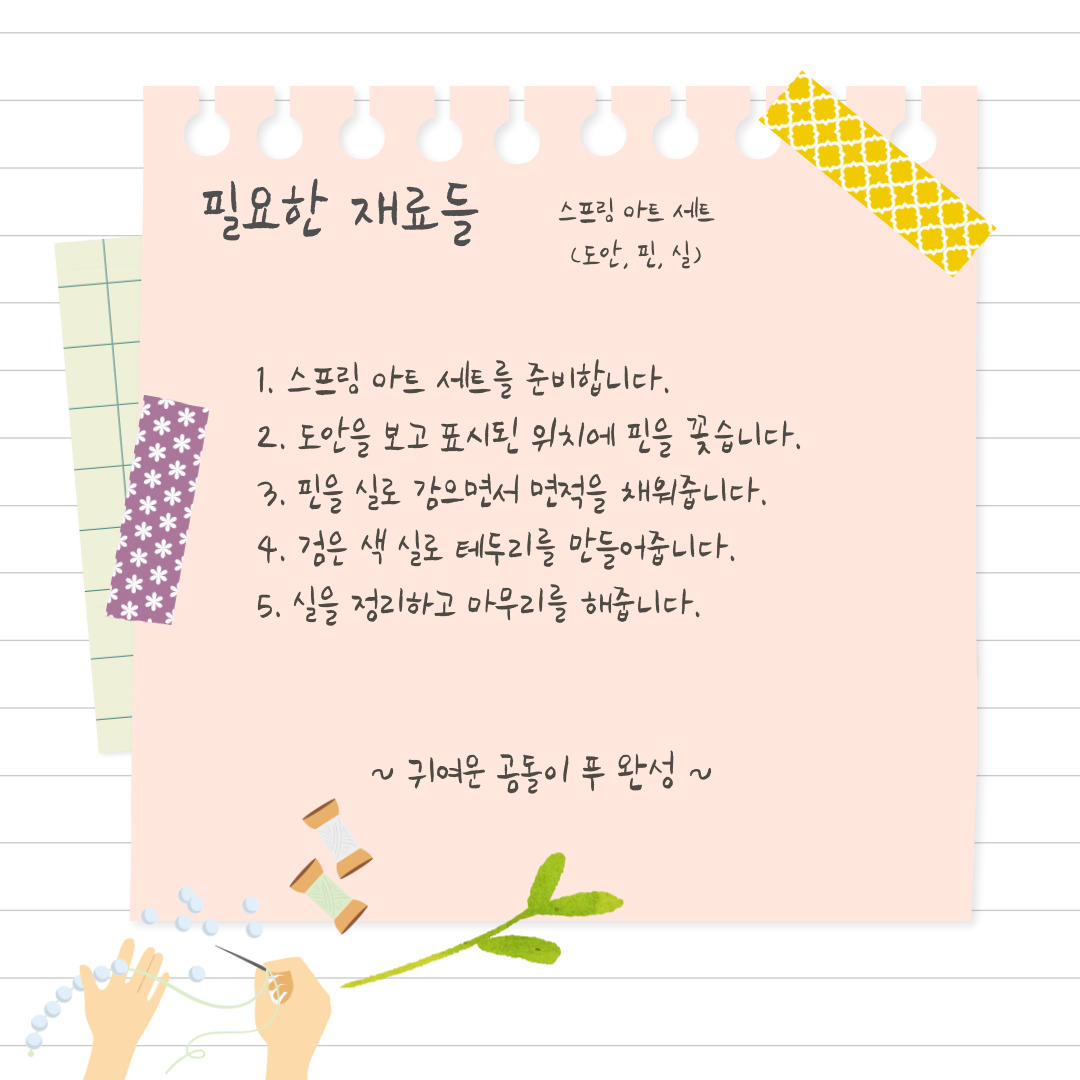 필요한 재료들
스프링 아트 세트
(도안, 핀, 실)
1. 스프링 아트 세트를 준비합니다.
2. 도안을 보고 표시된 위치에 핀을 꽂습니다.
3. 핀을 실로 감으면서 면적을 채워줍니다.
4. 검은 색 실로 테두리를 만들어줍니다.
5. 실을 정리하고 마무리를 해줍니다.
~ 귀여운 곰돌이 푸 완성 ~